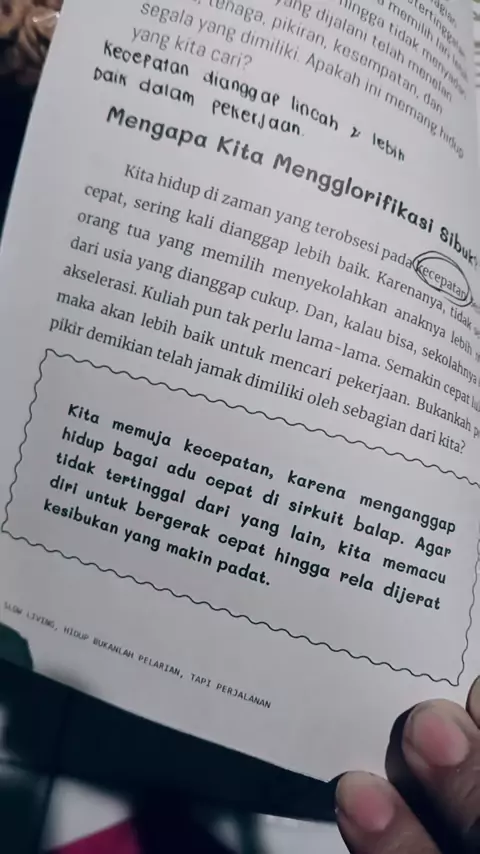 tenaga, pikiran, kesempatan, dan
segala yang dimiliki. Apakah ini memang hidup
yang kita cari?
kecepatan dianggap lincah & lebih
baik dalam pekerjaan.
Mengapa Kita Mengglorifikasi Sibuk?
Kita hidup di zaman yang terobsesi pada kecepatan
cepat, sering kali dianggap lebih baik. Karenanya, tidak
orang tua yang memilih menyekolahkan anaknya lebih
dari usia yang dianggap cukup. Dan, kalau bisa, sekolahnya
akselerasi. Kuliah pun tak perlu lama-lama. Semakin cepat
maka akan lebih baik untuk mencari pekerjaan. Bukankah
pikir demikian telah jamak dimiliki oleh sebagian dari kita?
Kita memuja kecepatan, karena menganggap
hidup bagai adu cepat di sirkuit balap. Agar
tidak tertinggal dari yang lain, kita memacu
diri untuk bergerak cepat hingga rela dijerat
kesibukan yang makin padat.
SLOW LIVING, HIDUP BUKANLAH PELARIAN, TAPI PERJALANAN